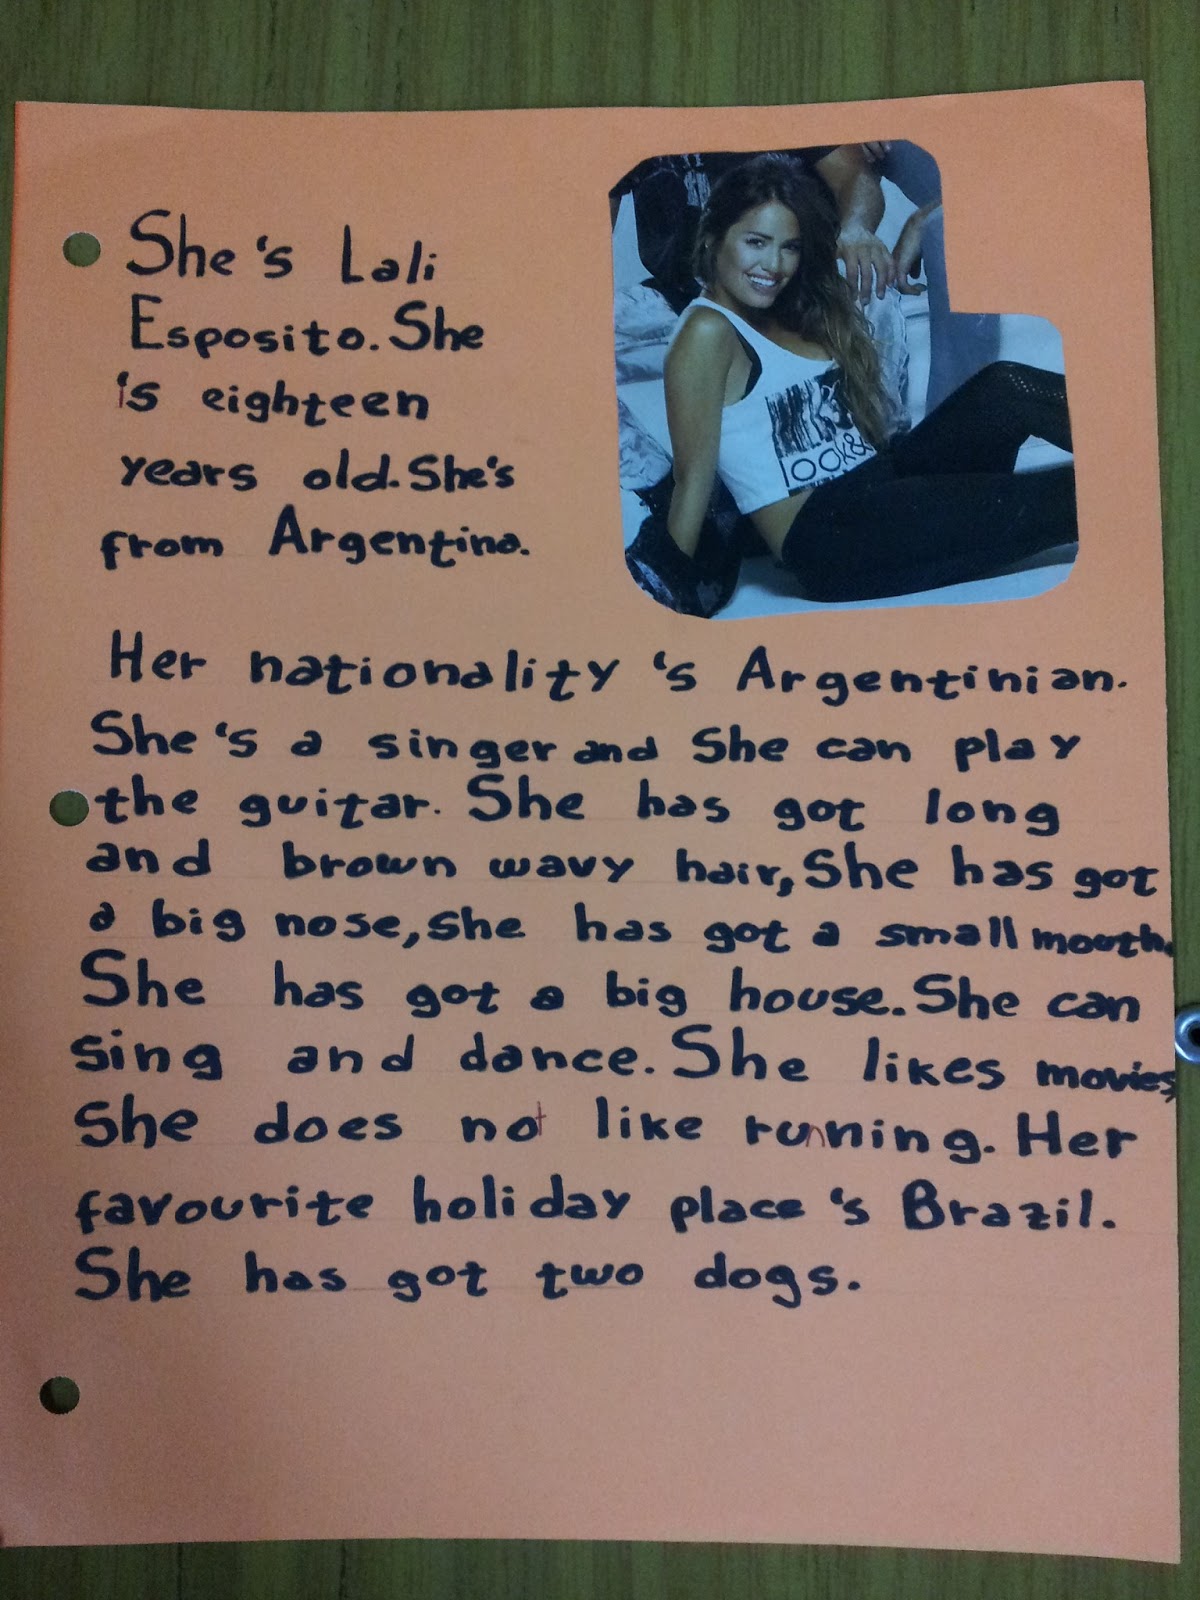 She's Lali
Esposito. She
is eighteen
years old. She's
from Argentina.
look&
Her nationality 's Argentinian.
She's a singer and She can play
the guitar. She has got long
and brown wavy hair, She has got
a big nose, she has got a small mooth.
She has got a big house. She can
sing and dance. She likes movies,
she does not like running. Her
favourite holiday place 's Brazil.
She has got two dogs.